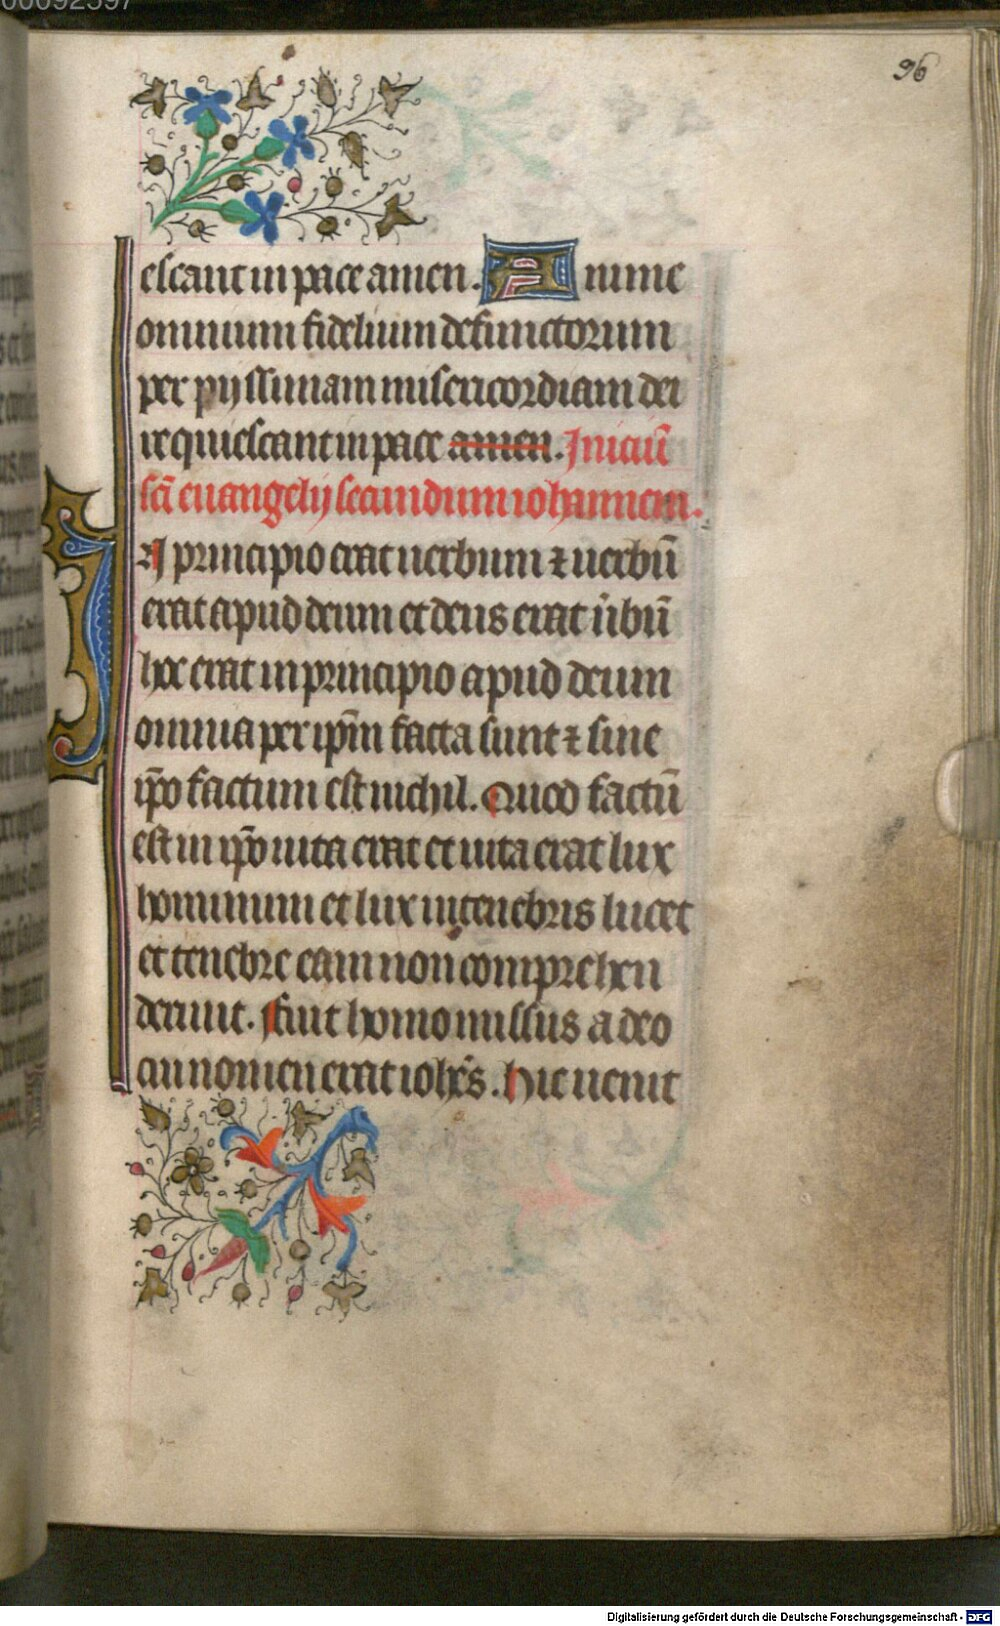 96
escant in pace amen. Anime
omnium fidelium defunctorum
per pijssimam misericordiam dei
requiescant in pace amen. Iniciū
sci̅ euangelij secundum iohannem.
In principio erat uerbum ⁊ uerbū
erat apud deum et deus erat u̅bū
hoc erat in principio apud deum
omnia per ip̅m facta sunt ⁊ sine
ip̅o factum est nichil. Quod factū
est in ip̅o uita erat et uita erat lux
hominum et lux in tenebris lucet
et tenebre eam non comprehen
derunt. Fuit homo missus a deo
cui nomen erat ioh̅es. Hic uenit
Digitalisierung gefördert durch die Deutsche Forschungsgemeinschaft - DFG